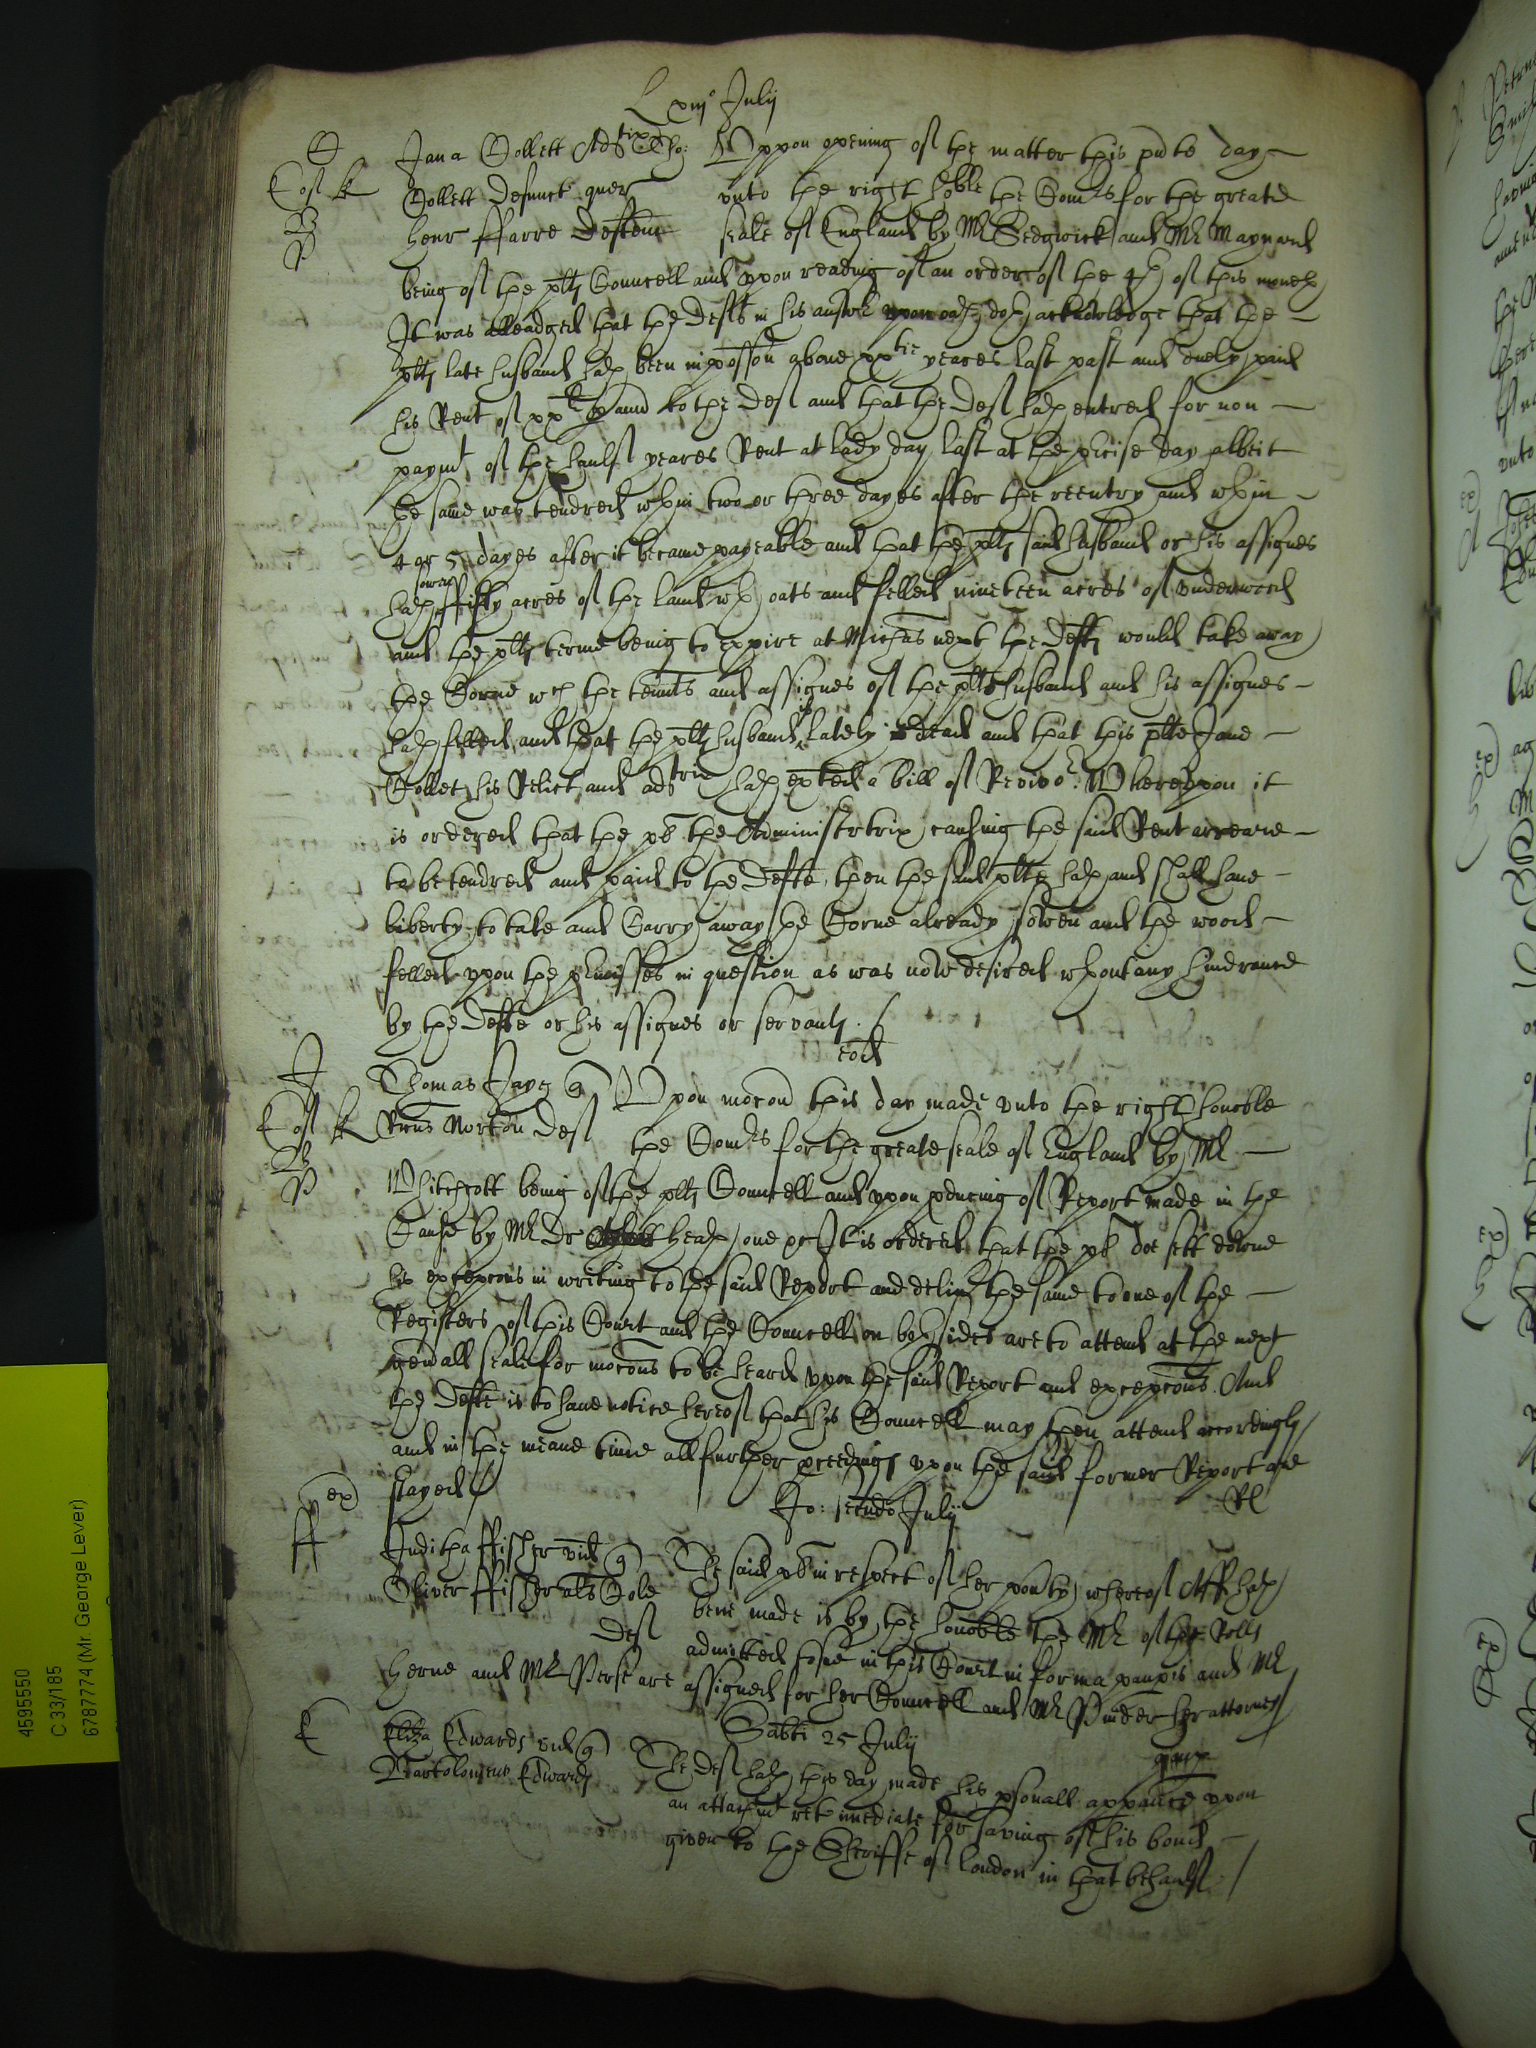 L xiijo Julij
C Jana Collett Adstrix Tho: Vppon opening of the matter this pnte day
Collett defunct quer vnto the right hoble the Comrs for the greate
B Henr ffarre deften seale of England by Mr Sedgwick and Mr Maynard
P being of the plts Councell and vpon reading of an order of the 4th of this moneth
It was alleadged that the deft in his answer doth acknowledge that the
plts late husband hath been in possion aboue xxtie yeares last past and duely paid
his Rent of xxl p annu to the deft and that the deft hath entred for non
paymt of the haulf yeares Rent at Lady day last at the precise day albeit
the same was tendred wthin two or three dayes after the reentry and wthin
4 or 5 dayes after it became payeable and that the plts said husband or his assignes
sowne
hath ffifty acres of the land wth oats and felled nineteen acres of vnderwood
and the plts terme being to expire at Michas next the defts would take away
the Corne wch the tennts and assignes of the plts husband and his assignes
hath felled and that the plts husband is lately dead and that this plte Jane
Collet his Relict and adstrix hath exted a bill of Revivor Wherevpon it
is ordered that the plt the Administrtrix causing the said Rent arreare
to be tendred and paid to the defte then the said plte hath and shall haue
liberty to take and Carry away the Corne already sowen and the wood
felled vpon the premisses in question as was now desired wthout any hindrance
by the defte or his assignes or servants
eod
J Thomas Jay q Vpon mocon this day made vnto the right honoble
Norton deft the Comrs for the greate seale of England by Mr
B Whitchcott being of the plts Councell and vpon pducing of Report made in the
P Cause by Mr Dr Heath one &c It is ordered that the plt doe sett downe
his excepcons in writing to the said Report and deliver the same to one of the
Registers of this Court and the Councell on both sides are to attend at the next
genall seale for mocons to be heard vpon the said Report and excepcons And
the defte is to haue notice hereof that his Councell may then attend accordingly
and in the meane time all further pceedings vpon the said former Report are
stayed
Jo: secudo Julij Rl
ex
ff Juditha ffisher vid q The said plt in respect of her pouty whereof Afft hath
Oliver ffisher als Cole bene made is by the honoble the Mr of the Rolls
deft admitted to sue in this Court in forma paupis and Mr
Herne and Mr Perse are assigned for her Councell and Mr Pinder her attorney
Sabti 25 Julij
E Eliza Edwards vid q The deft hath this day made his psonall appance vpon
Bartolomeus Edwards an attachmt ret imediate for saving of his bond
given to the Sheriffe of London in that behaulf
4595550
C 33/185
6787774 (Mr. George Lever)